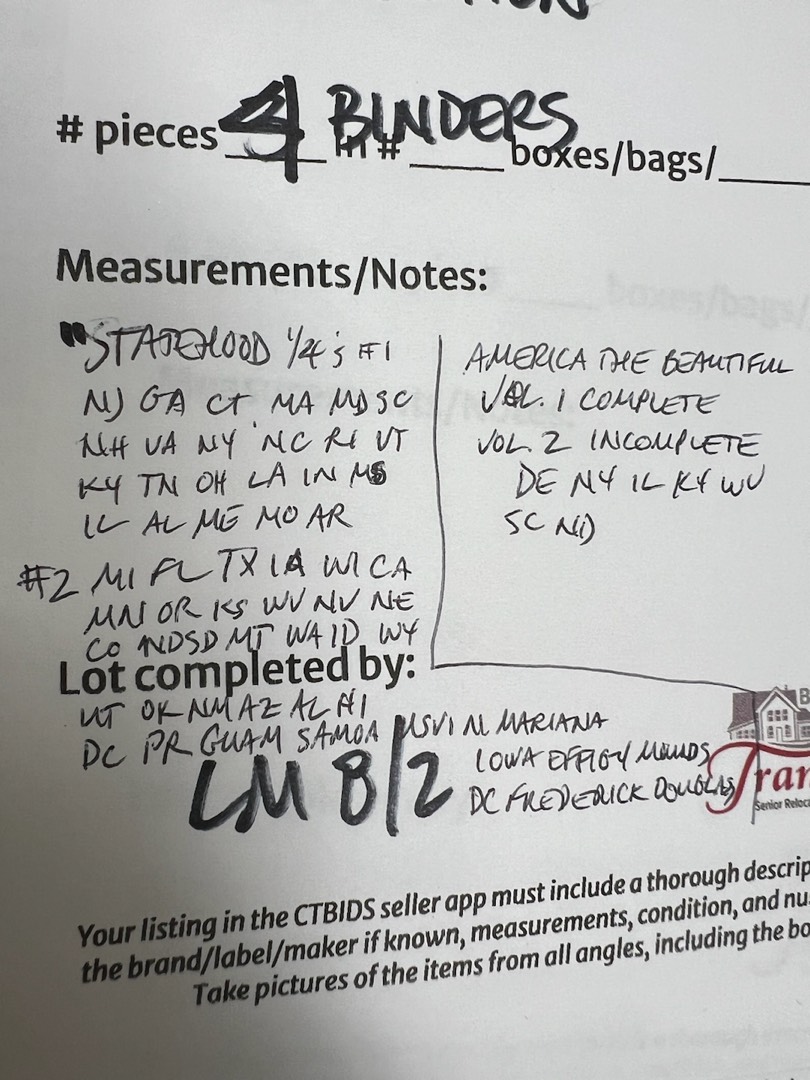 # pieces 4 BINDERS in # boxes/bags/
Measurements/Notes:
"STATEHOOD 1/4's #1
NJ GA CT MA MD SC
NH VA NY NC RI VT
KY TN OH LA IN MS
IL AL ME MO AR
#2 MI FL TX IA WI CA
MN OR KS WV NV NE
CO ND SD MT WA ID WY
Lot completed by:
UT OK NM AZ AL HI
DC PR GUAM SAMOA USVI N. MARIANA
LM 8/2
AMERICA THE BEAUTIFUL
VOL. 1 COMPLETE
VOL. 2 INCOMPLETE
DE NY IL KY WV
SC ND
IOWA EFFIGY MOUNDS
DC FREDERICK DOUGLAS
Tran
Senior Reloc
Your listing in the CTBIDS seller app must include a thorough descrip
the brand/label/maker if known, measurements, condition, and nu
Take pictures of the items from all angles, including the bo